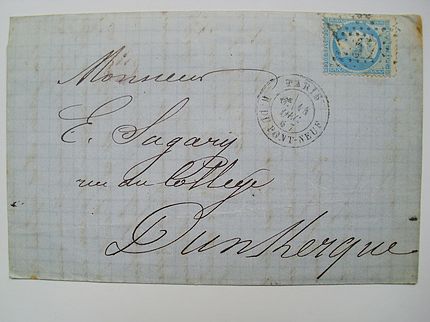 Monsieur
E. Sagary
rue du College
Dunkerque
PARIS
R. DU PONT-NEUF
67